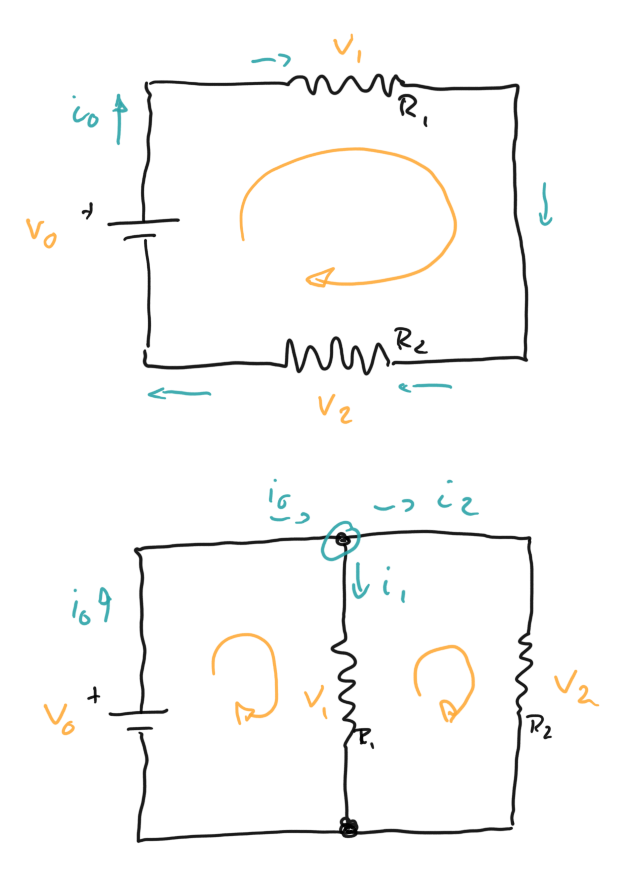 V₁
i₀
R₁
+
V₀
R₂
V₂
i₀
i₂
i₁
i₀
+
V₀
V₁
R₁
V₂
R₂